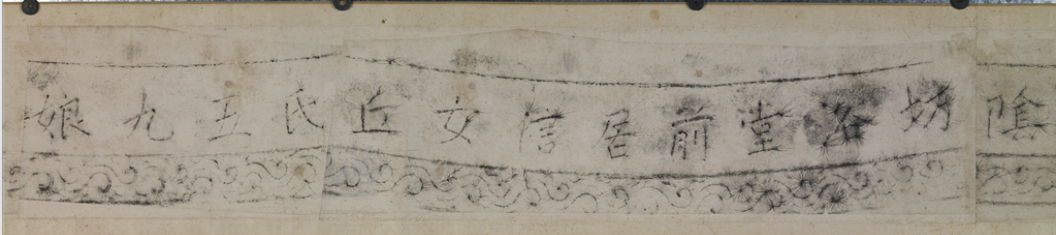 陰坊浴堂前居信女丘氏五九娘